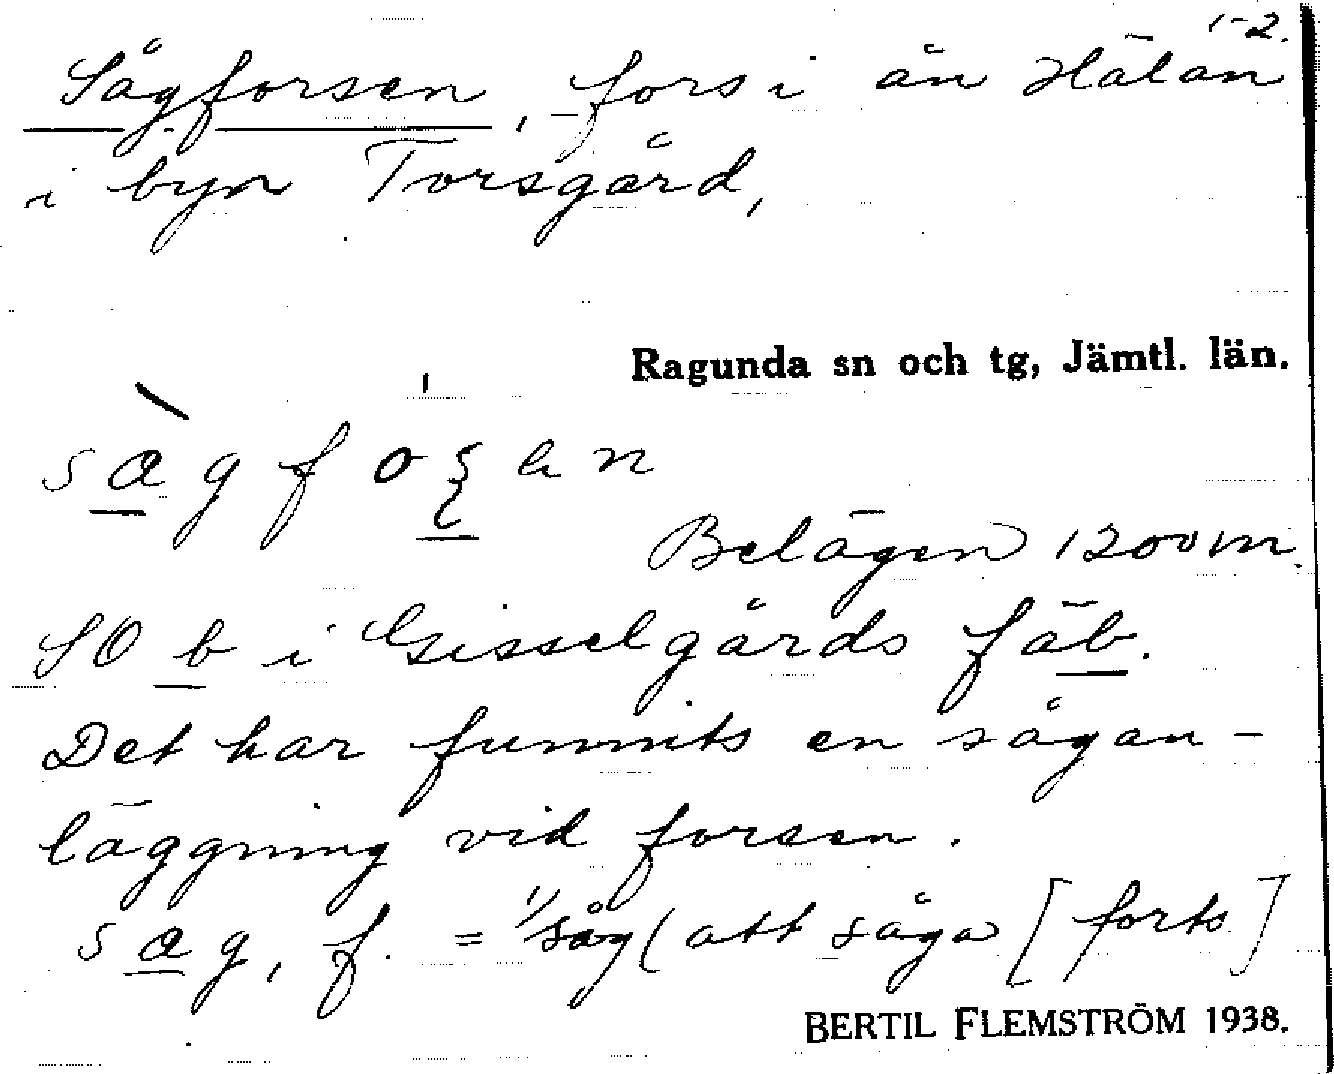 1-2.
Sågforsen, fors i ån Hälån
i byn Torsgård,
Ragunda sn och tg, Jämtl. län.
Belägen 1200 m
SO b i Gisselgårds fäb.
Det har funnits en sågan-
läggning vid forsen.
sag, f. = 1/ såg (att såga [forts]
BERTIL FLEMSTRÖM 1938.